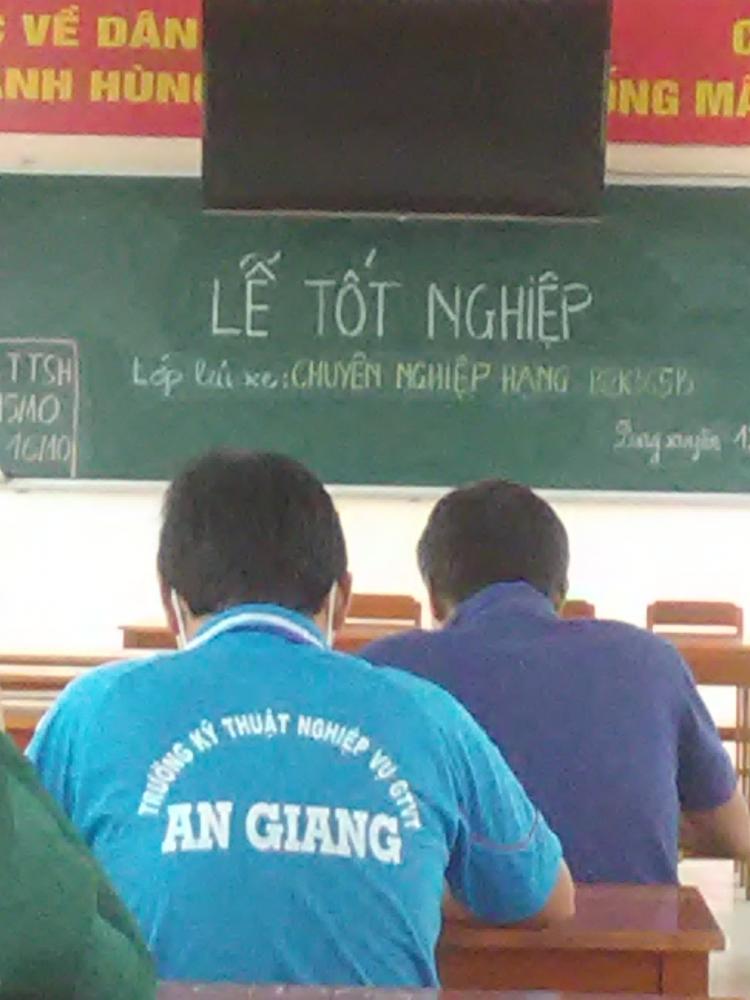 VỀ DÂN
ANH HÙNG
ỐNG MÃ
LỄ TỐT NGHIỆP
Lớp lái xe: CHUYÊN NGHIỆP HẠNG
TTSH
15/10
16/10
TRƯỜNG KỸ THUẬT NGHIỆP VỤ GTVT
AN GIANG